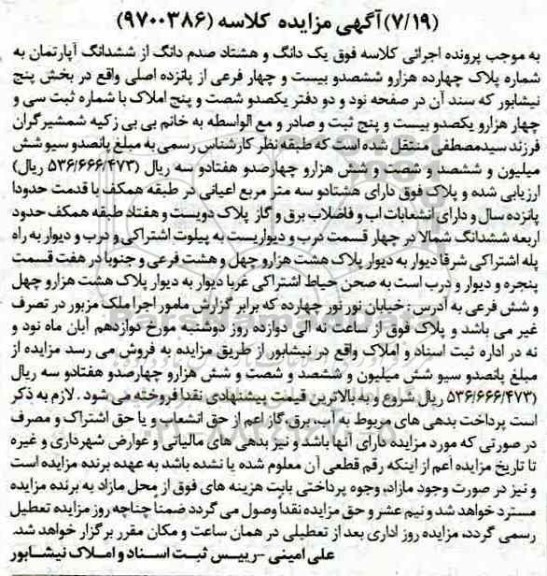 (۷/۱۹)آگهی مزایده کلاسه (۹۷۰۰۳۸۶)
به موجب پرونده اجرائی کلاسه فوق یک دانگ و هشتاد صدم دانگ از ششدانگ آپارتمان به
شماره پلاک چهارده هزارو ششصدو بیست و چهار فرعی از پانزده اصلی واقع در بخش پنج
نیشابور که سند آن در صفحه نود و دو دفتر یکصدو شصت و پنج املاک با شماره ثبت سی و
چهار هزارو یکصدو بیست و پنج ثبت و صادر و مع الواسطه به خانم بی بی زکیه شمشیرگران
فرزند سیدمصطفی منتقل شده است که طبقه نظر کارشناس رسمی به مبلغ پانصدو سیو شش
میلیون و ششصد و شصت و شش هزارو چهارصدو هفتادو سه ریال (۵۳۶/۶۶۶/۴۷۳ ریال)
ارزیابی شده و پلاک فوق دارای هشتادو سه متر مربع اعیانی در طبقه همکف با قدمت حدودا
پانزده سال و دارای انشعابات اب و فاضلاب برق و گاز پلاک دویست و هفتاد طبقه همکف حدود
اربعه ششدانگ شمالا در چهار قسمت درب و دیواریست به پیلوت اشتراکی و درب و دیوار به راه
پله اشتراکی شرقا دیوار به دیوار پلاک هشت هزارو چهل و هشت فرعی و جنوبا در هفت قسمت
پنجره و دیوار و درب است به صحن حیاط اشتراکی غربا دیوار به دیوار پلاک هشت هزارو چهل
و شش فرعی به آدرس : خیابان نور نور چهارده که برابر گزارش مامور اجرا ملک مزبور در تصرف
غیر می باشد و پلاک فوق از ساعت نه الی دوازده روز دوشنبه مورخ دوازدهم آبان ماه نود و
نه در اداره ثبت اسناد و املاک واقع در نیشابور از طریق مزایده به فروش می رسد مزایده از
مبلغ پانصدو سیو شش میلیون و ششصد و شصت و شش هزارو چهارصدو هفتادو سه ریال
(۵۳۶/۶۶۶/۴۷۳ ریال شروع و به بالاترین قیمت پیشنهادی نقدا فروخته می شود . لازم به ذکر
است پرداخت بدهی های مربوط به آب، برق، گاز اعم از حق انشعاب و یا حق اشتراک و مصرف
در صورتی که مورد مزایده دارای آنها باشد و نیز بدهی های مالیاتی و عوارض شهرداری و غیره
تا تاریخ مزایده اعم از اینکه رقم قطعی آن معلوم شده یا نشده باشد به عهده برنده مزایده است
و نیز در صورت وجود مازاد، وجوه پرداختی بابت هزینه های فوق از محل مازاد به برنده مزایده
مسترد خواهد شد و نیم عشر و حق مزایده نقداً وصول می گردد ضمناً چناچه روز مزایده تعطیل
رسمی گردد، مزایده روز اداری بعد از تعطیلی در همان ساعت و مکان مقرر برگزار خواهد شد.
علی امینی -رییس ثبت اسناد و املاک نیشابور